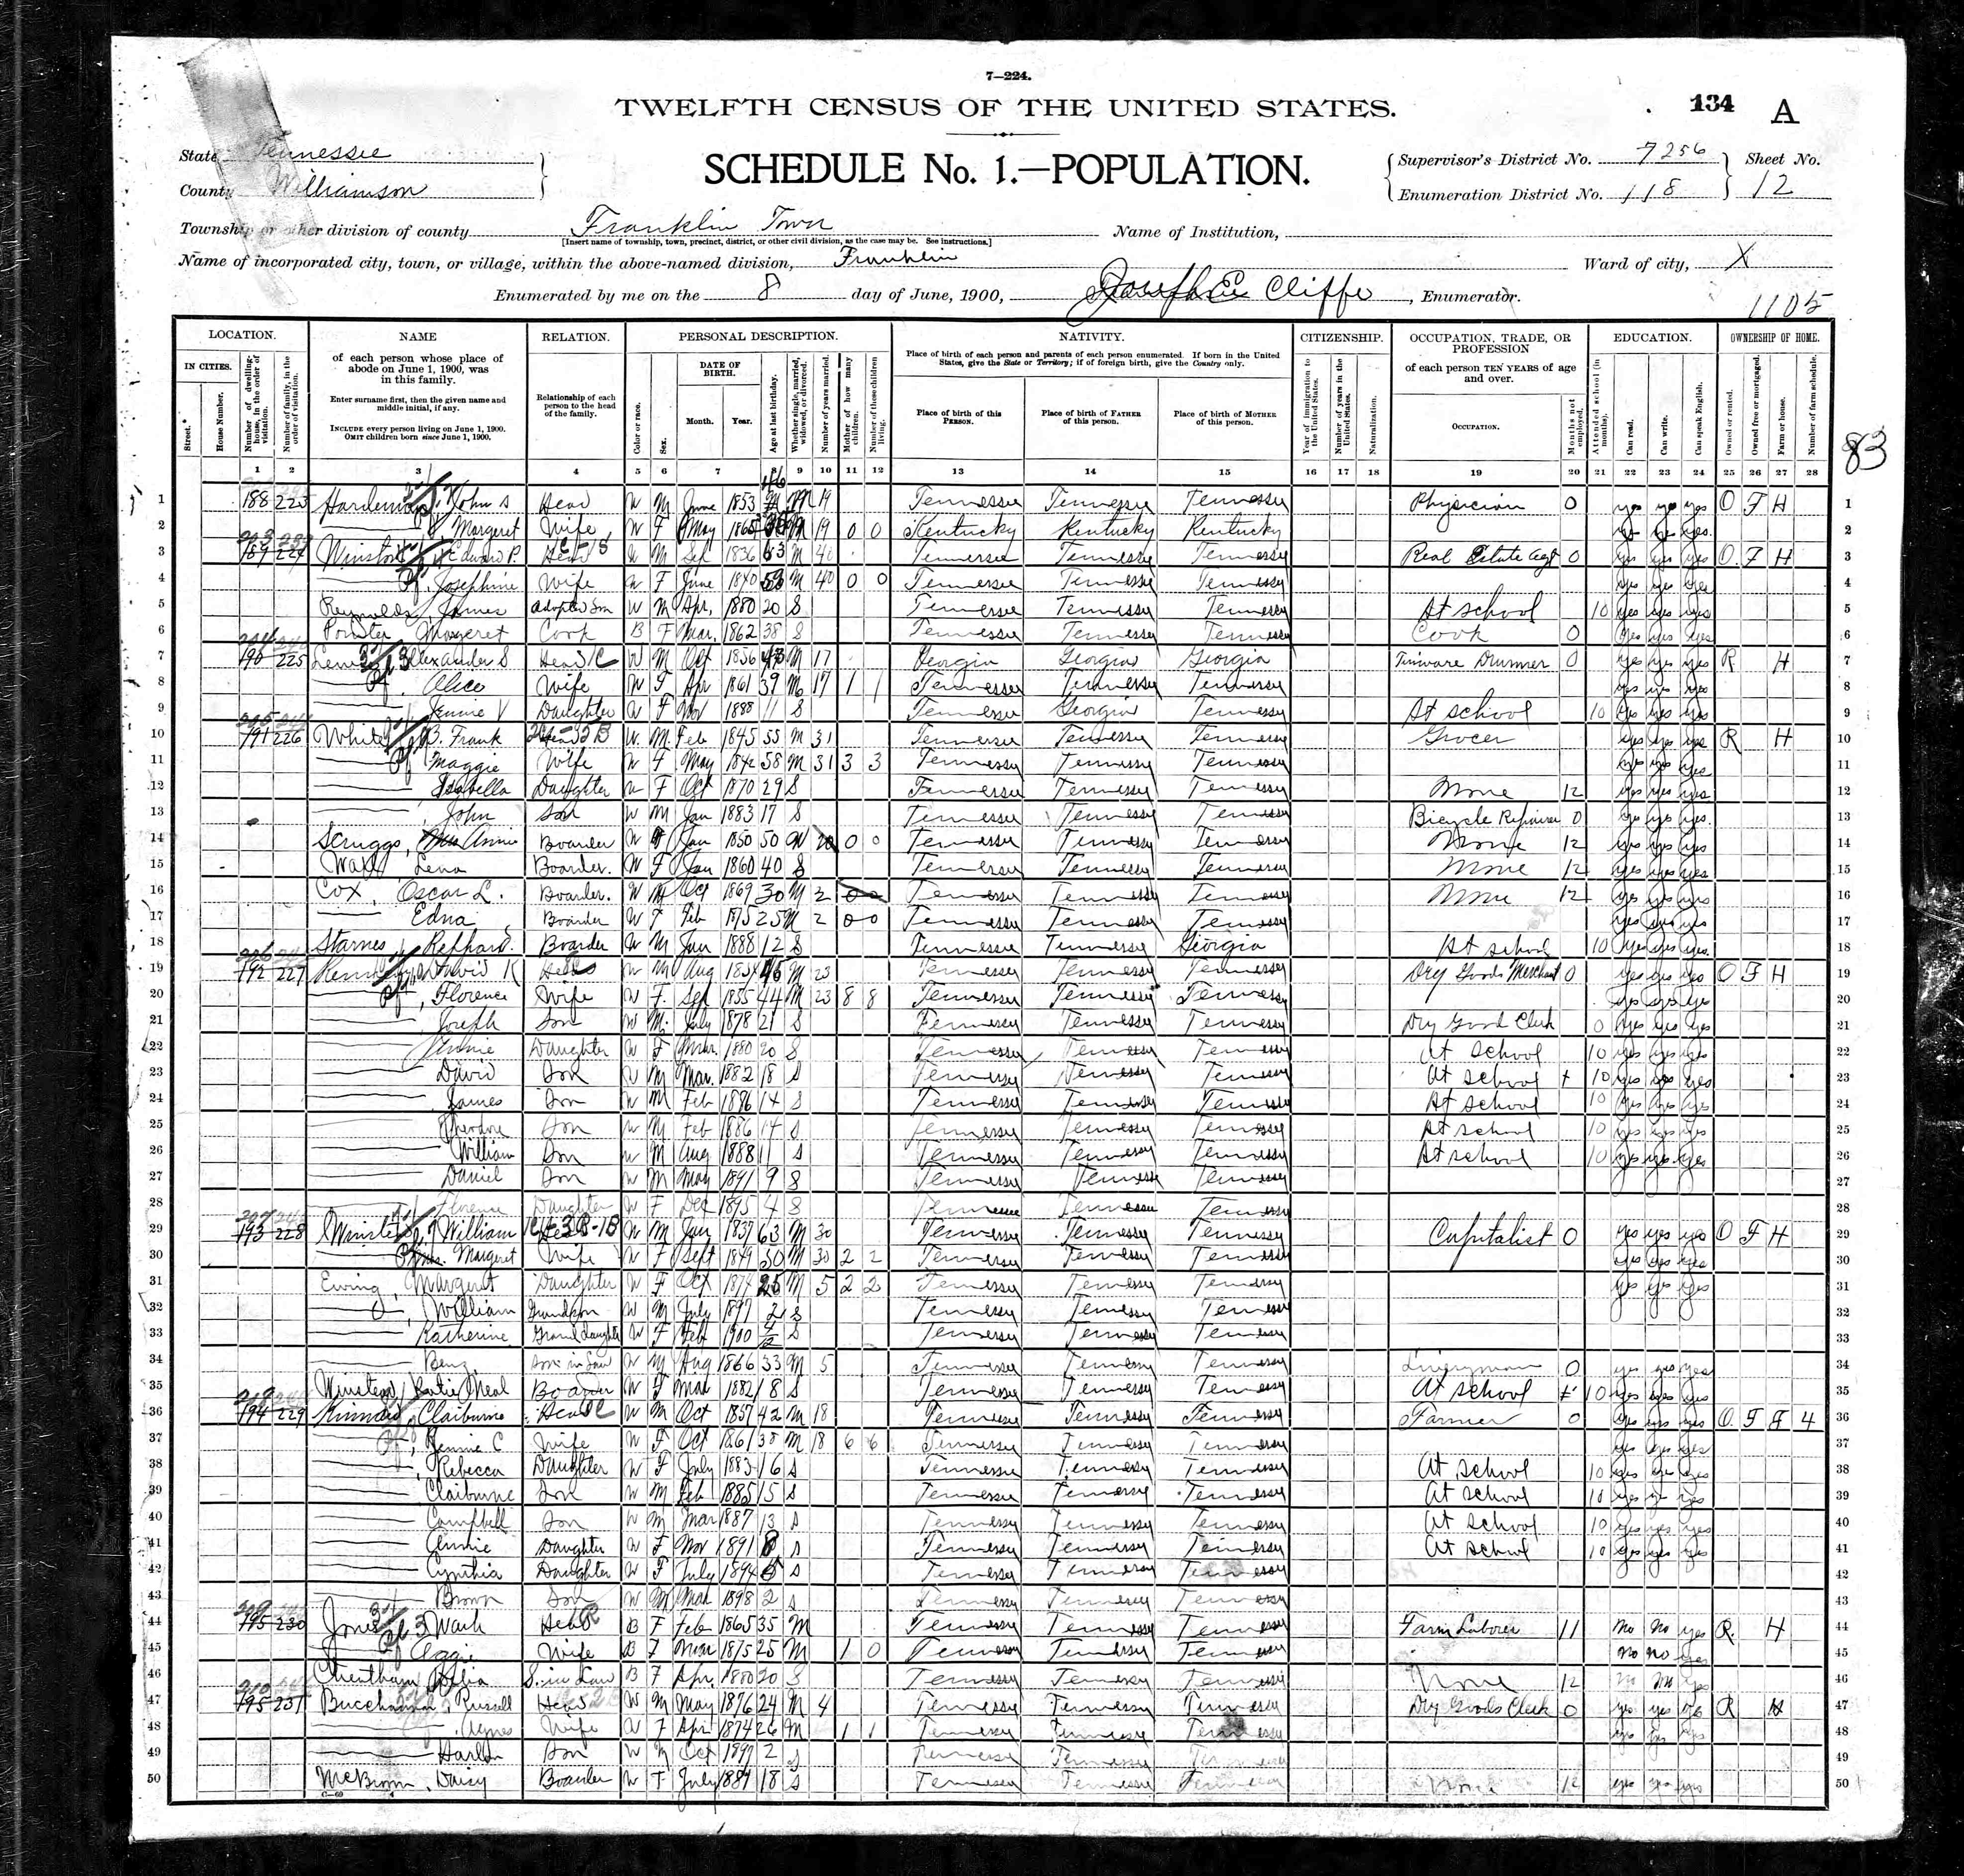 7—224.
TWELFTH CENSUS OF THE UNITED STATES.
134 A
State Tennessee
County Williamson
SCHEDULE No. 1.—POPULATION.
Supervisor's District No. 7256
Enumeration District No. 118
Sheet No. 12
Township or other division of county Franklin Town
[Insert name of township, town, precinct, district, or other civil division, as the case may be. See instructions.]
Name of Institution,
Name of incorporated city, town, or village, within the above-named division, Franklin
Ward of city, X
Enumerated by me on the 8 day of June, 1900, Joseph E Cliffe, Enumerator.
1105
83
LOCATION. NAME RELATION. PERSONAL DESCRIPTION. NATIVITY. CITIZENSHIP. OCCUPATION, TRADE, OR PROFESSION EDUCATION. OWNERSHIP OF HOME.
IN CITIES.
Street.
House Number.
Number of dwelling-house, in the order of visitation.
Number of family, in the order of visitation.
of each person whose place of abode on June 1, 1900, was in this family.
Enter surname first, then the given name and middle initial, if any.
INCLUDE every person living on June 1, 1900.
OMIT children born since June 1, 1900.
Relationship of each person to the head of the family.
Color or race.
Sex.
DATE OF BIRTH.
Month. Year.
Age at last birthday.
Whether single, married, widowed, or divorced.
Number of years married.
Mother of how many children.
Number of these children living.
Place of birth of each person and parents of each person enumerated. If born in the United States, give the State or Territory; if of foreign birth, give the Country only.
Place of birth of this PERSON.
Place of birth of FATHER of this person.
Place of birth of MOTHER of this person.
Year of immigration to the United States.
Number of years in the United States.
Naturalization.
of each person TEN YEARS of age and over.
OCCUPATION.
Months not employed.
Attended school (in months).
Can read.
Can write.
Can speak English.
Owned or rented.
Owned free or mortgaged.
Farm or house.
Number of farm schedule.
1 2 3 4 5 6 7 8 9 10 11 12 13 14 15 16 17 18 19 20 21 22 23 24 25 26 27 28
1 188 223 Hardeman, John S Head W M June 1853 46 M 19 Tennessee Tennessee Tennessee Physician 0 yes yes yes O F H 1
2 Margaret Wife W F May 1865 M 19 0 0 Kentucky Kentucky Kentucky yes yes yes 2
3 189 224 Winston Edward P. Head W M Sep 1836 63 M 40 Tennessee Tennessee Tennessee Real Estate Agt 0 yes yes yes O F H 3
4 Josephine Wife W F June 1840 M 40 0 0 Tennessee Tennessee Tennessee yes yes yes 4
5 Reynolds James Adopted Son W M Apr. 1880 20 S Tennessee Tennessee Tennessee At school 10 yes yes yes 5
6 Margeret Cook B F Mar. 1862 38 S Tennessee Tennessee Tennessee Cook 0 yes yes yes 6
7 190 225 Alexander S Head W M Oct 1856 43 M 17 Georgia Georgia Georgia Tinware Drummer 0 yes yes yes R H 7
8 Alice Wife W F Apr 1861 39 M 17 1 1 Tennessee Tennessee Tennessee yes yes yes 8
9 Jennie V Daughter W F Nov 1888 11 S Tennessee Georgia Tennessee At school 10 yes yes yes 9
10 191 226 White B. Frank Head W. M Feb 1845 55 M 31 Tennessee Tennessee Tennessee Grocer yes yes yes R H 10
11 Maggie Wife W F May 1842 58 M 31 3 3 Tennessee Tennessee Tennessee yes yes yes 11
12 Isabella Daughter W F Oct 1870 29 S Tennessee Tennessee Tennessee None 12 yes yes yes 12
13 John Son W M Jan 1883 17 S Tennessee Tennessee Tennessee Bicycle 0 yes yes yes. 13
14 Scruggs, Mrs Annie Boarder W F Jan 1850 50 W 0 0 Tennessee Tennessee Tennessee None 12 yes yes yes 14
15 Lena Boarder. W F Jan 1860 40 S Tennessee Tennessee Tennessee None 12 yes yes yes 15
16 Cox, Oscar L. Boarder. W M Oct 1869 30 M 2 Tennessee Tennessee Tennessee None 12 yes yes yes 16
17 Edna Boarder W F Feb 1875 25 M 2 0 0 Tennessee Tennessee Tennessee yes yes yes 17
18 Starnes Boarder W M Jan 1888 12 S Tennessee Tennessee Georgia At school 10 yes yes yes 18
19 192 227 David K Head W M Aug 1854 45 M 23 Tennessee Tennessee Tennessee Dry Goods Merchant 0 yes yes yes O F H 19
20 Florence Wife W F. Sep 1855 44 M 23 8 8 Tennessee Tennessee Tennessee yes yes yes 20
21 Joseph Son W M July 1878 21 S Tennessee Tennessee Tennessee Dry Good Clerk 0 yes yes yes 21
22 Daughter W F Mar 1880 20 S Tennessee Tennessee Tennessee At school 10 yes yes yes 22
23 David Son W M Mar. 1882 18 S Tennessee Tennessee Tennessee At school 10 yes yes yes 23
24 James Son W M Feb 14 S Tennessee Tennessee Tennessee At school 10 yes yes yes 24
25 Theodore Son W M Feb 1886 14 S Tennessee Tennessee Tennessee At school 10 yes yes yes 25
26 William Son W M Aug 1888 11 S Tennessee Tennessee Tennessee At school 10 yes yes yes 26
27 Daniel Son W M May 1891 9 S Tennessee Tennessee Tennessee 27
28 Florence Daughter W F Dec 1895 4 S Tennessee Tennessee Tennessee 28
29 193 228 Winstead William Head W M Jan 1837 63 M 30 Tennessee Tennessee Tennessee Capitalist 0 yes yes yes O F H 29
30 Mrs. Margaret Wife W F Sept 1849 50 M 30 2 2 Tennessee Tennessee Tennessee yes yes yes 30
31 Ewing, Margeret Daughter W F Oct 1874 25 M 5 2 2 Tennessee Tennessee Tennessee yes yes yes 31
32 William Grandson W M July 1897 2 S Tennessee Tennessee Tennessee 32
33 Katherine Grand daughter W F Feb 1900 4/12 S Tennessee Tennessee Tennessee 33
34 Benj. Son in Law W M Aug 1866 33 M 5 Tennessee Tennessee Tennessee Liveryman 0 yes yes yes 34
35 Winstead Katie Neal Boarder W F Mar 1882 18 S Tennessee Tennessee Tennessee At school 10 yes yes yes 35
36 194 229 Kinnard Claiburne Head W M Oct 1857 42 M 18 Tennessee Tennessee Tennessee Farmer 0 yes yes yes O. F F 4 36
37 Jennie C Wife W F Oct 1861 38 M 18 6 6 Tennessee Tennessee Tennessee yes yes yes 37
38 Rebecca Daughter W F July 1883 16 S Tennessee Tennessee Tennessee At school 10 yes yes yes 38
39 Claiburne Son W M Feb 1885 15 S Tennessee Tennessee Tennessee At school 10 yes yes yes 39
40 Campbell Son W M Mar 1887 13 S Tennessee Tennessee Tennessee At school 10 yes yes yes 40
41 Annie Daughter W F Nov 1891 8 S Tennessee Tennessee Tennessee At school 10 yes yes yes 41
42 Cynthia Daughter W F July 1894 5 S Tennessee Tennessee Tennessee 42
43 Brown Son W M Mar 1898 2 S Tennessee Tennessee Tennessee 43
44 195 230 Jones Wash Head B F Feb 1865 35 M Tennessee Tennessee Tennessee Farm Laborer 11 no no yes R. H 44
45 Wife B F Mar 1875 25 M 1 0 Tennessee Tennessee Tennessee no no yes 45
46 Cheatham S. in Law B F Apr 1880 20 S Tennessee Tennessee Tennessee None 12 no no yes 46
47 195 231 Russell Head W M May 1876 24 M 4 Tennessee Tennessee Tennessee Dry Goods Clerk 0 yes yes R H 47
48 Agnes Wife W F Apr 1874 26 M 1 1 Tennessee Tennessee Tennessee yes yes yes 48
49 Son W M Oct 1897 2 S Tennessee Tennessee Tennessee 49
50 Daisy Boarder W F July 18 S Tennessee Tennessee Tennessee None 12 yes yes yes 50